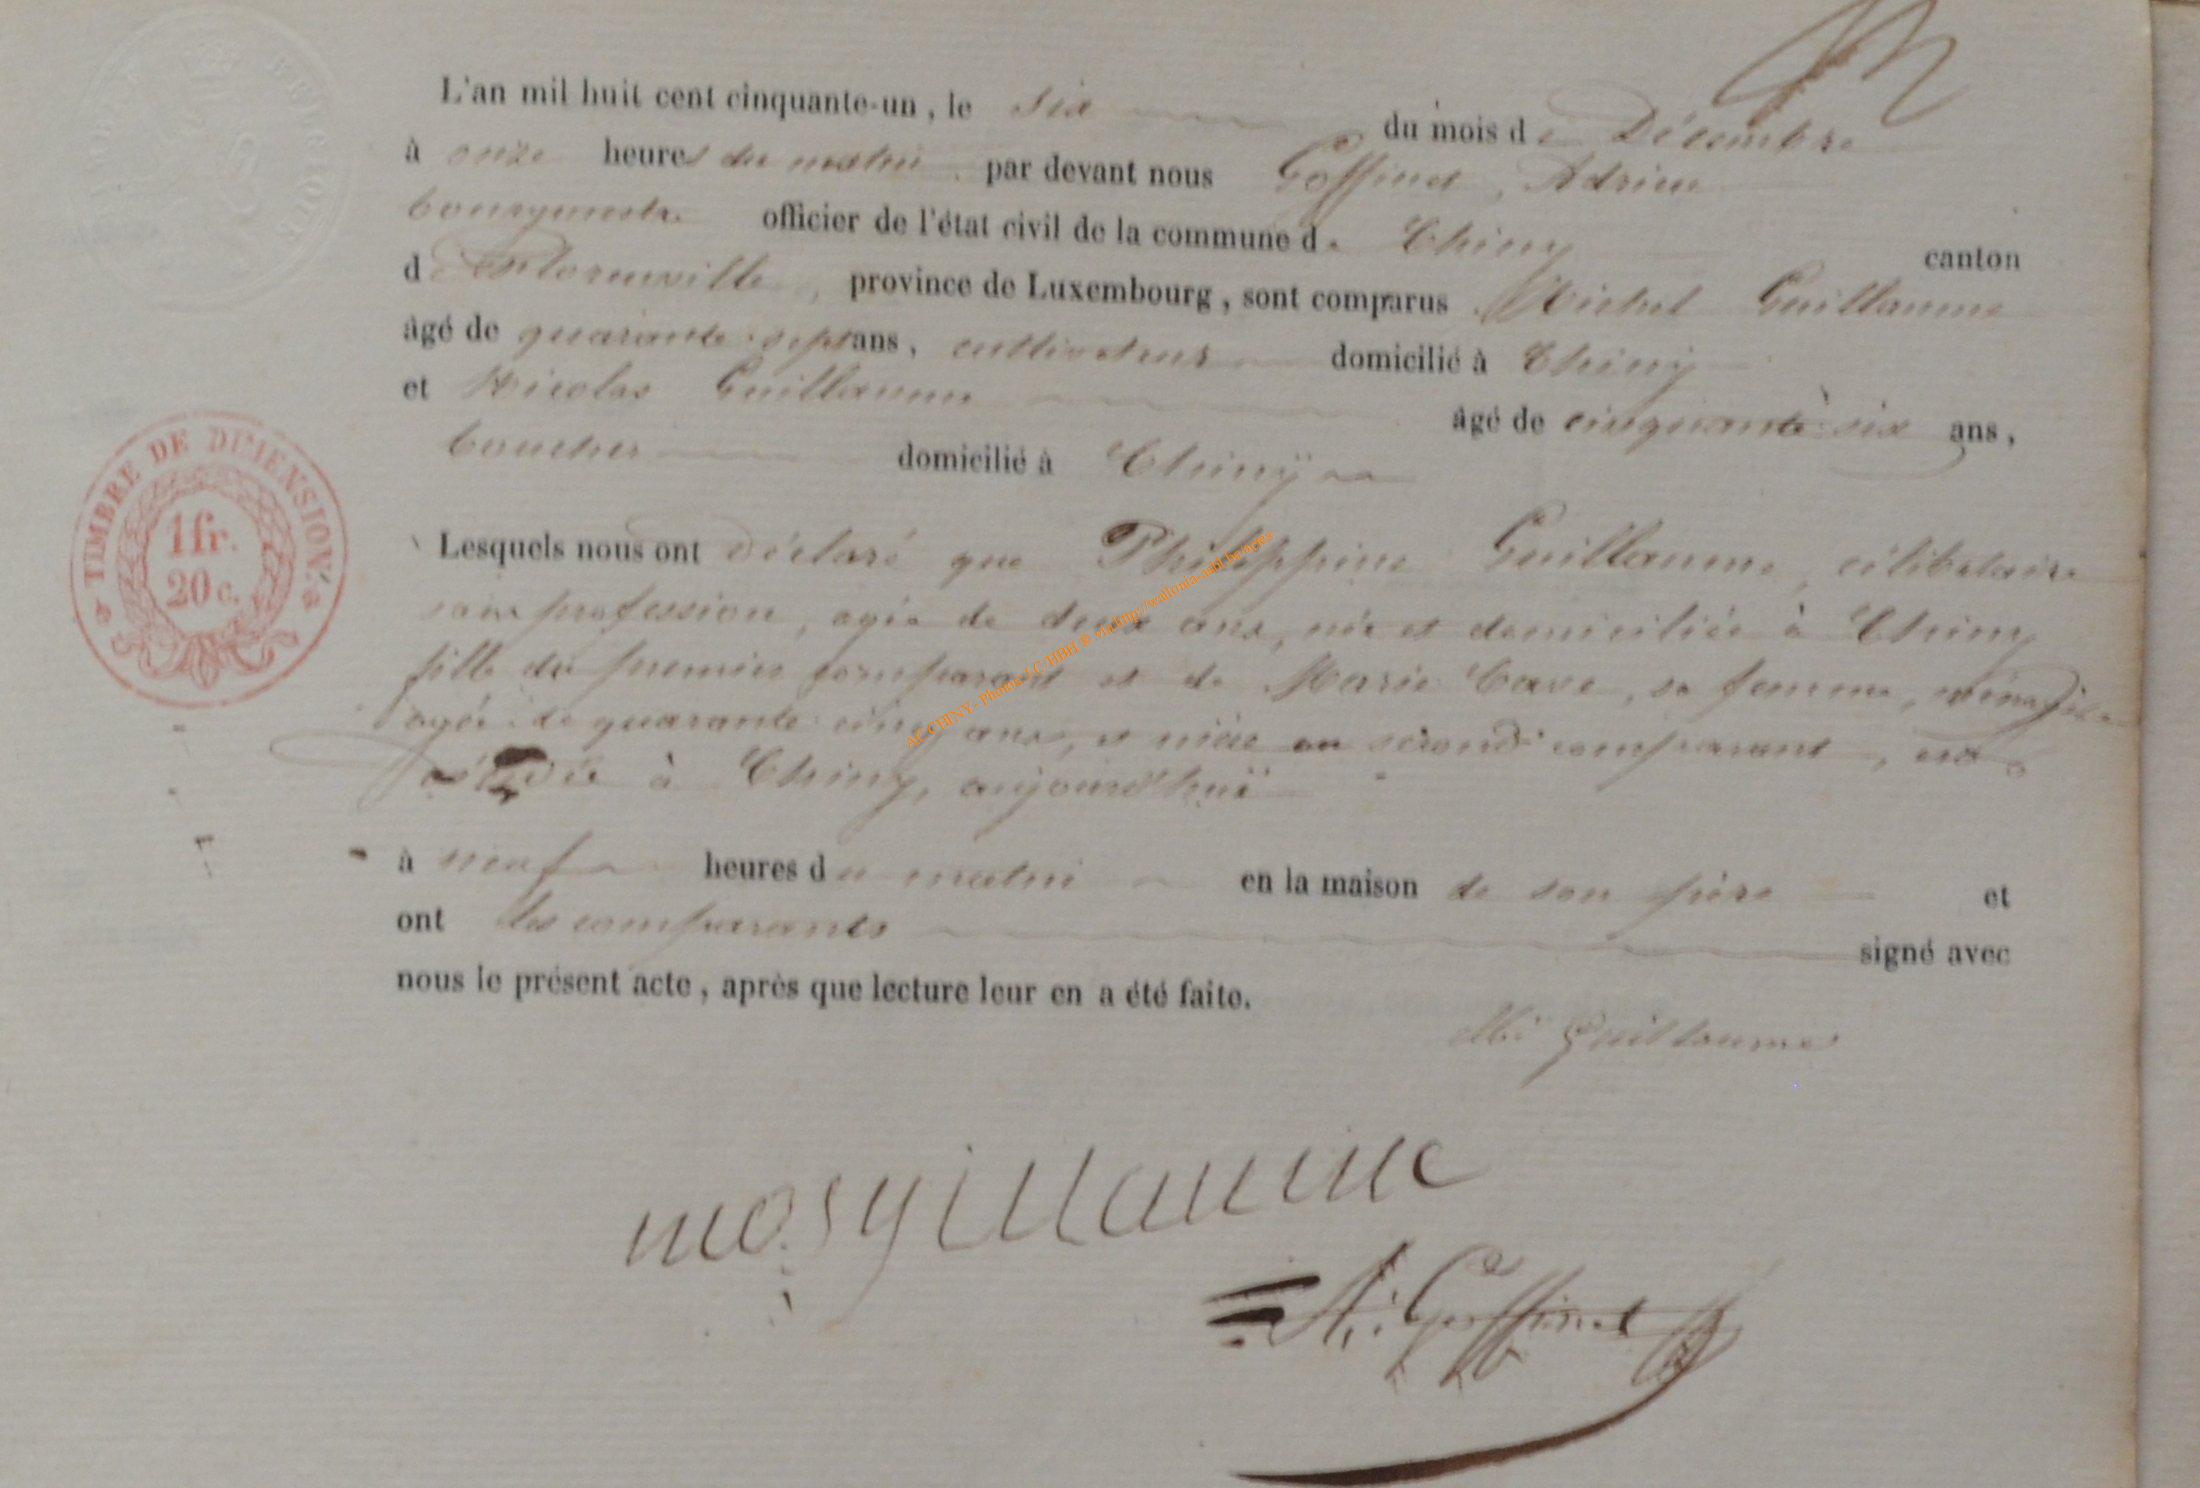 L'an mil huit cent cinquante-un, le six du mois de Décembre
à onze heures du matin par devant nous Goffinet, Adrien
bourgmestre officier de l'état civil de la commune de Chiny canton
de Florenville, province de Luxembourg, sont comparus Michel Guillaume
âgé de quarante-sept ans, cultivateur domicilié à Chiny
et Nicolas Guillaume âgé de cinquante-six ans,
domicilié à Chiny
Lesquels nous ont déclaré que Philippine Guillaume, célibataire
sans profession, agée de deux ans, née et domiciliée à Chiny
fille du premier comparant et de Marie Cave, sa femme, ménagère
agée de quarante-cinq ans, et nièce au second comparant, est
décédée à Chiny, aujourd'hui
à neuf heures du matin en la maison de son père et
ont les comparants signé avec
nous le présent acte, après que lecture leur en a été faite.
Mi Guillaume
gillaume
A. Goffinet
TIMBRE DE DIMENSION.
1 fr.
20 c.
AC CHINY- Photos J.C HBH ® via http://wallonia-asbl.be/actes